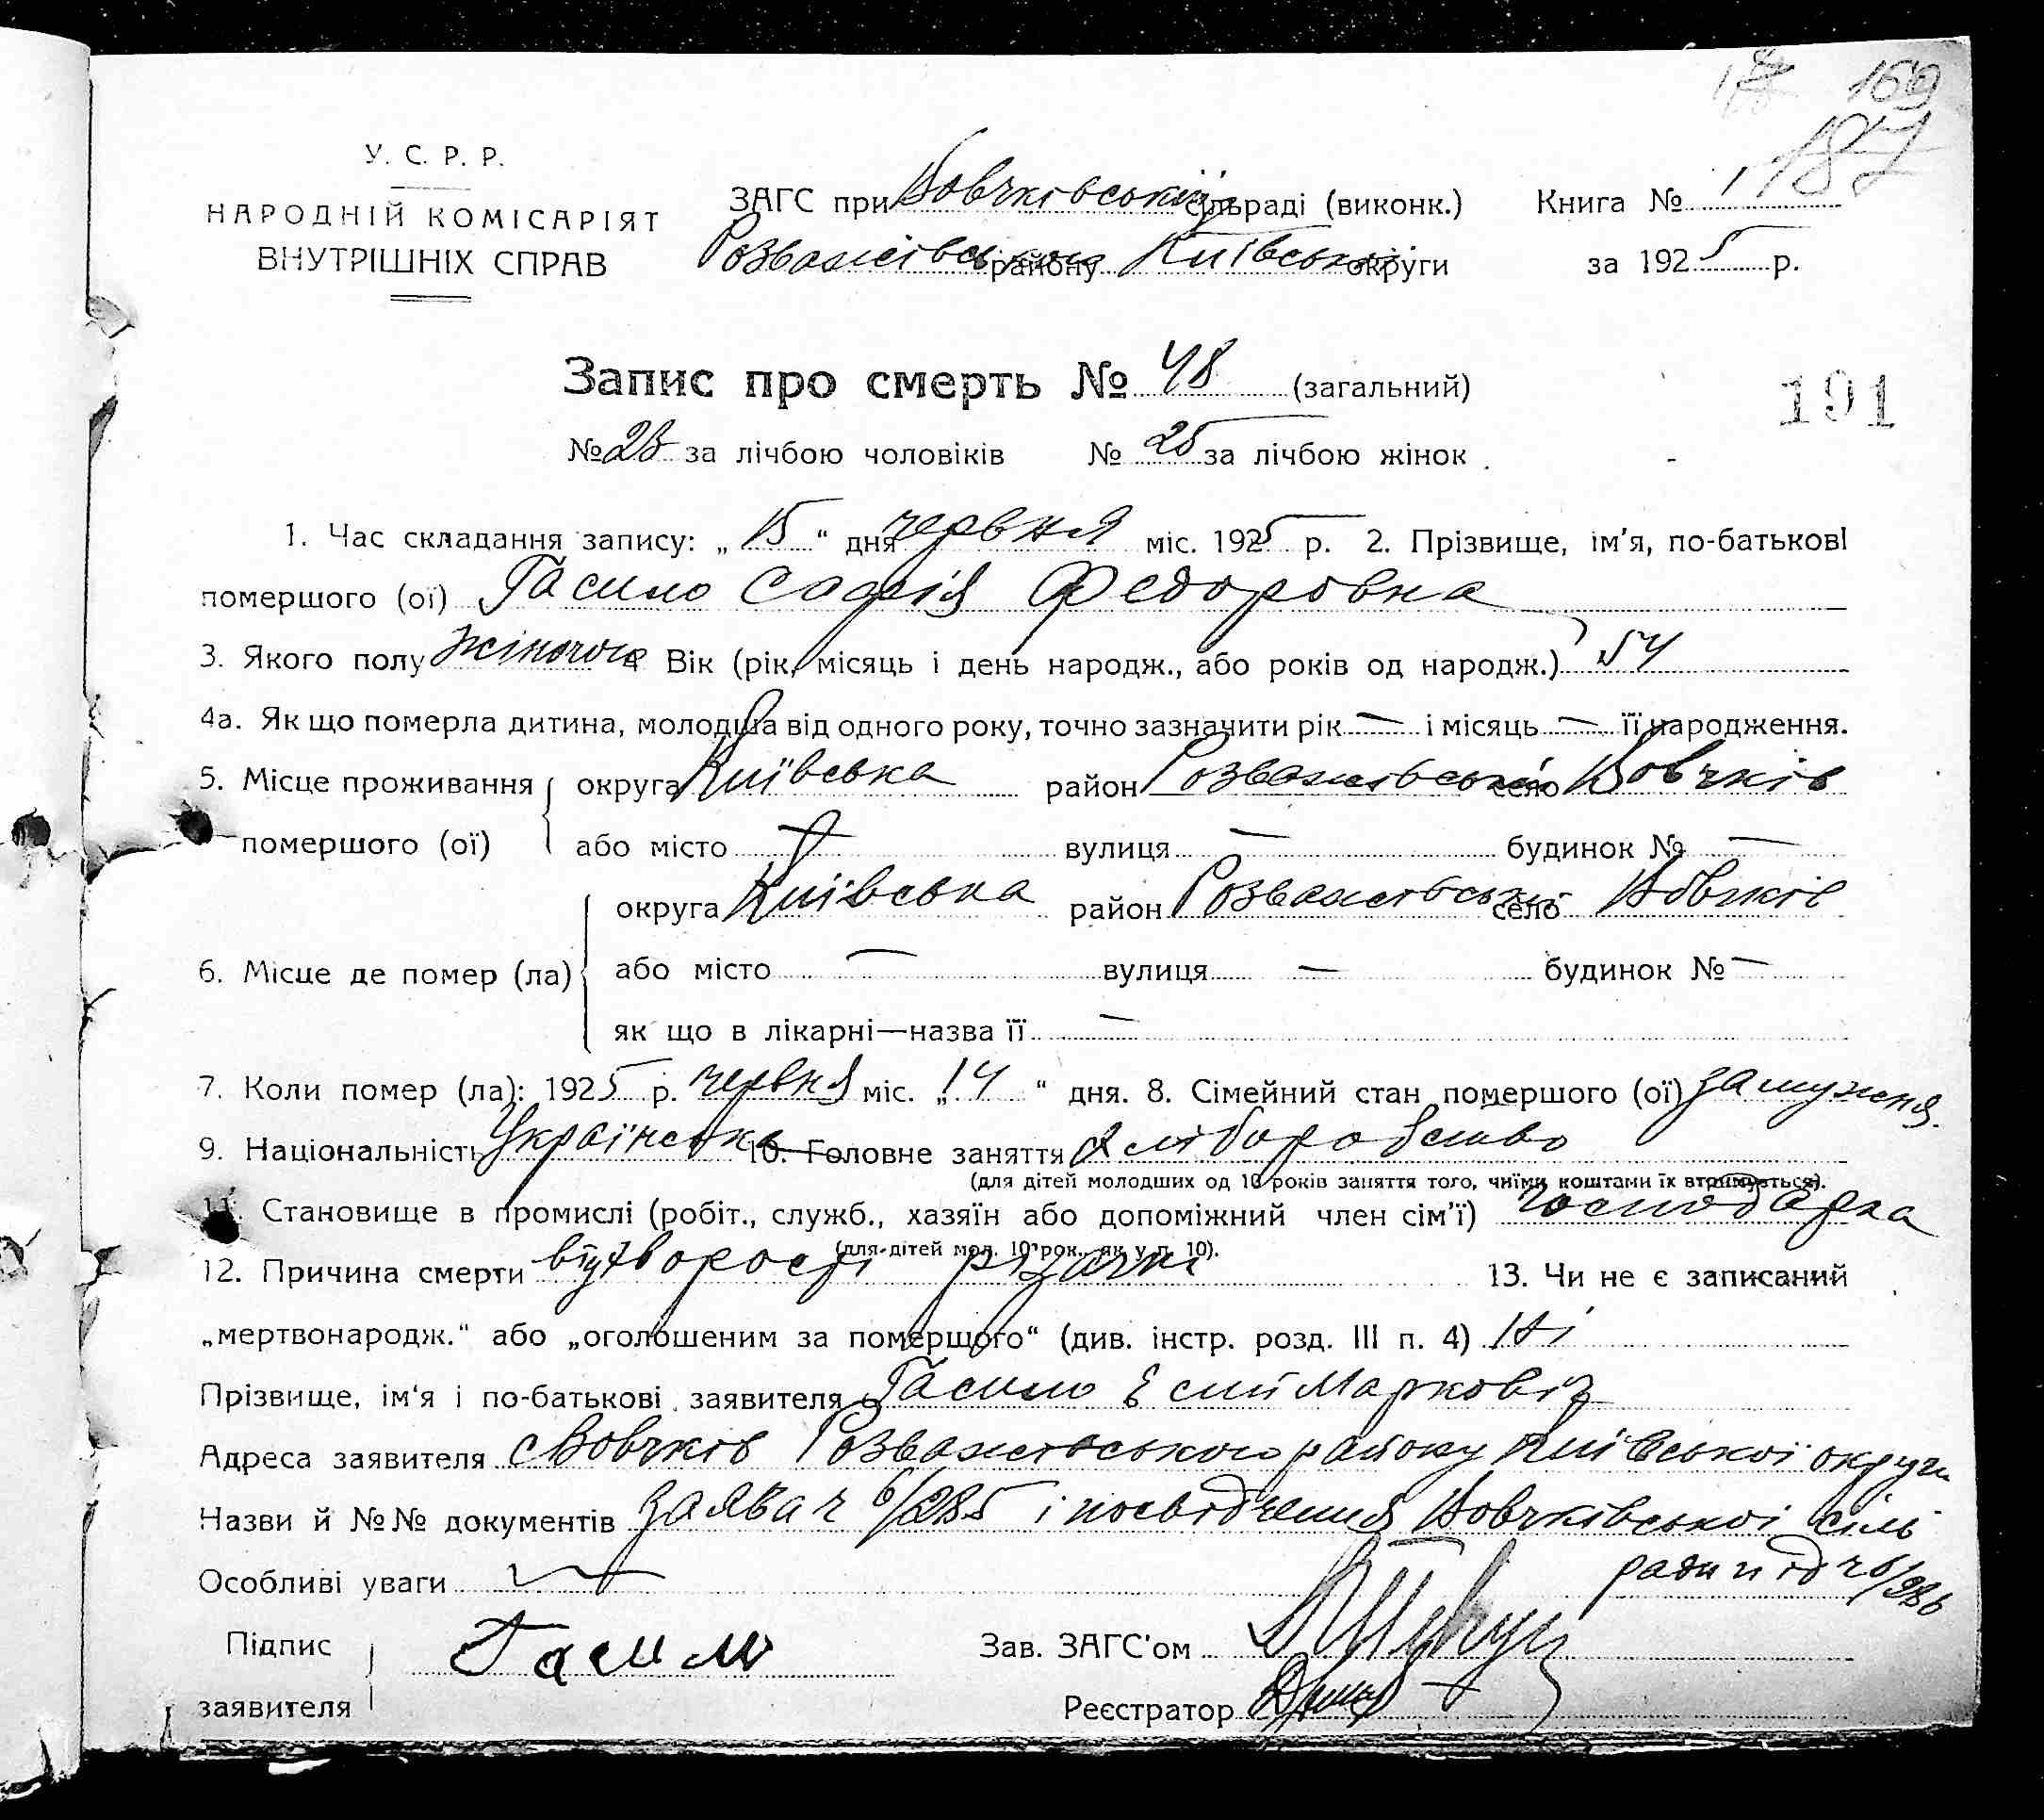 169
187
У. С. Р. Р.
НАРОДНІЙ КОМІСАРІЯТ
ВНУТРІШНІХ СПРАВ
ЗАГС при Вовчківській сільраді (виконк.)
Розважівського району Київської округи
Книга № 1
за 1925 р.
Запис про смерть № 48 (загальний)
191
№ 23 за лічбою чоловіків № 25 за лічбою жінок
1. Час складання запису: „ 15 “ дня червня міс. 1925 р. 2. Прізвище, ім’я, по-батькові
помершого (ої) Гасило Софія Федоровна
3. Якого полу жіночого 4 Вік (рік, місяць і день народж., або років од народж.) 54
4а. Як що померла дитина, молодша від одного року, точно зазначити рік — і місяць — її народження.
5. Місце проживання округа Київська район Розважівський село Вовчків
помершого (ої) або місто — вулиця — будинок № —
округа Київська район Розважівський село Вовчків
6. Місце де помер (ла) або місто — вулиця — будинок № —
як що в лікарні—назва її —
7. Коли помер (ла): 1925 р. червня міс. „ 14 “ дня. 8. Сімейний стан помершого (ої) замужня.
9. Національність Українська 10. Головне заняття Хліборобство
(для дітей молодших од 10 років заняття того, чиїми коштами їх втримується).
11. Становище в промислі (робіт., служб., хазяїн або допоміжний член сім’ї) господарка
(для дітей мол. 10 рок., як у п. 10).
12. Причина смерти від хворості різачкі 13. Чи не є записаний
„мертвонародж.“ або „оголошеним за померщого“ (див. інстр. розд. III п. 4) Ні
Прізвище, ім‘я і по-батькові заявителя Гасило Маркович
Адреса заявителя с Вовчків Розважівського району Київської округи
Назви й №№ документів Заява ч 6/285 і посвідчення Вовчківської сіль
ради під ч 6/286
Особливі уваги —
Підпис
заявителя
Гасило
Зав. ЗАГС’ом
Реєстратор